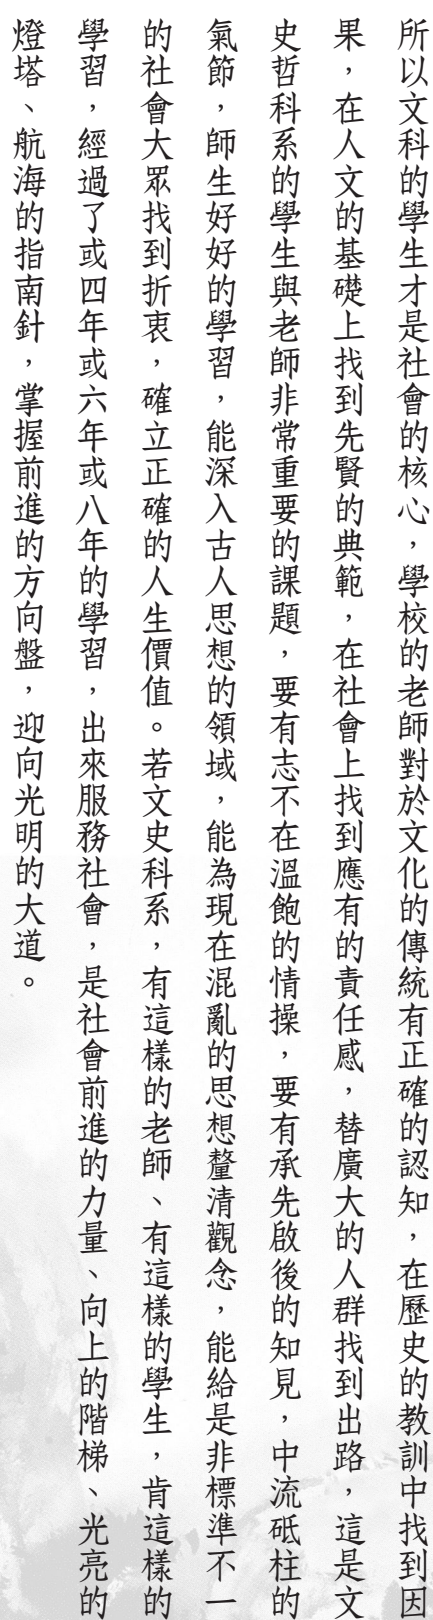 所以文科的學生才是社會的核心，學校的老師對於文化的傳統有正確的認知，在歷史的教訓中找到因
果，在人文的基礎上找到先賢的典範，在社會上找到應有的責任感，替廣大的人群找到出路，這是文
史哲科系的學生與老師非常重要的課題，要有志不在溫飽的情操，要有承先啟後的知見，中流砥柱的
氣節，師生好好的學習，能深入古人思想的領域，能為現在混亂的思想釐清觀念，能給是非標準不一
的社會大眾找到折衷，確立正確的人生價值。若文史科系，有這樣的老師、有這樣的學生，肯這樣的
學習，經過了或四年或六年或八年的學習，出來服務社會，是社會前進的力量、向上的階梯、光亮的
燈塔、航海的指南針，掌握前進的方向盤，迎向光明的大道。